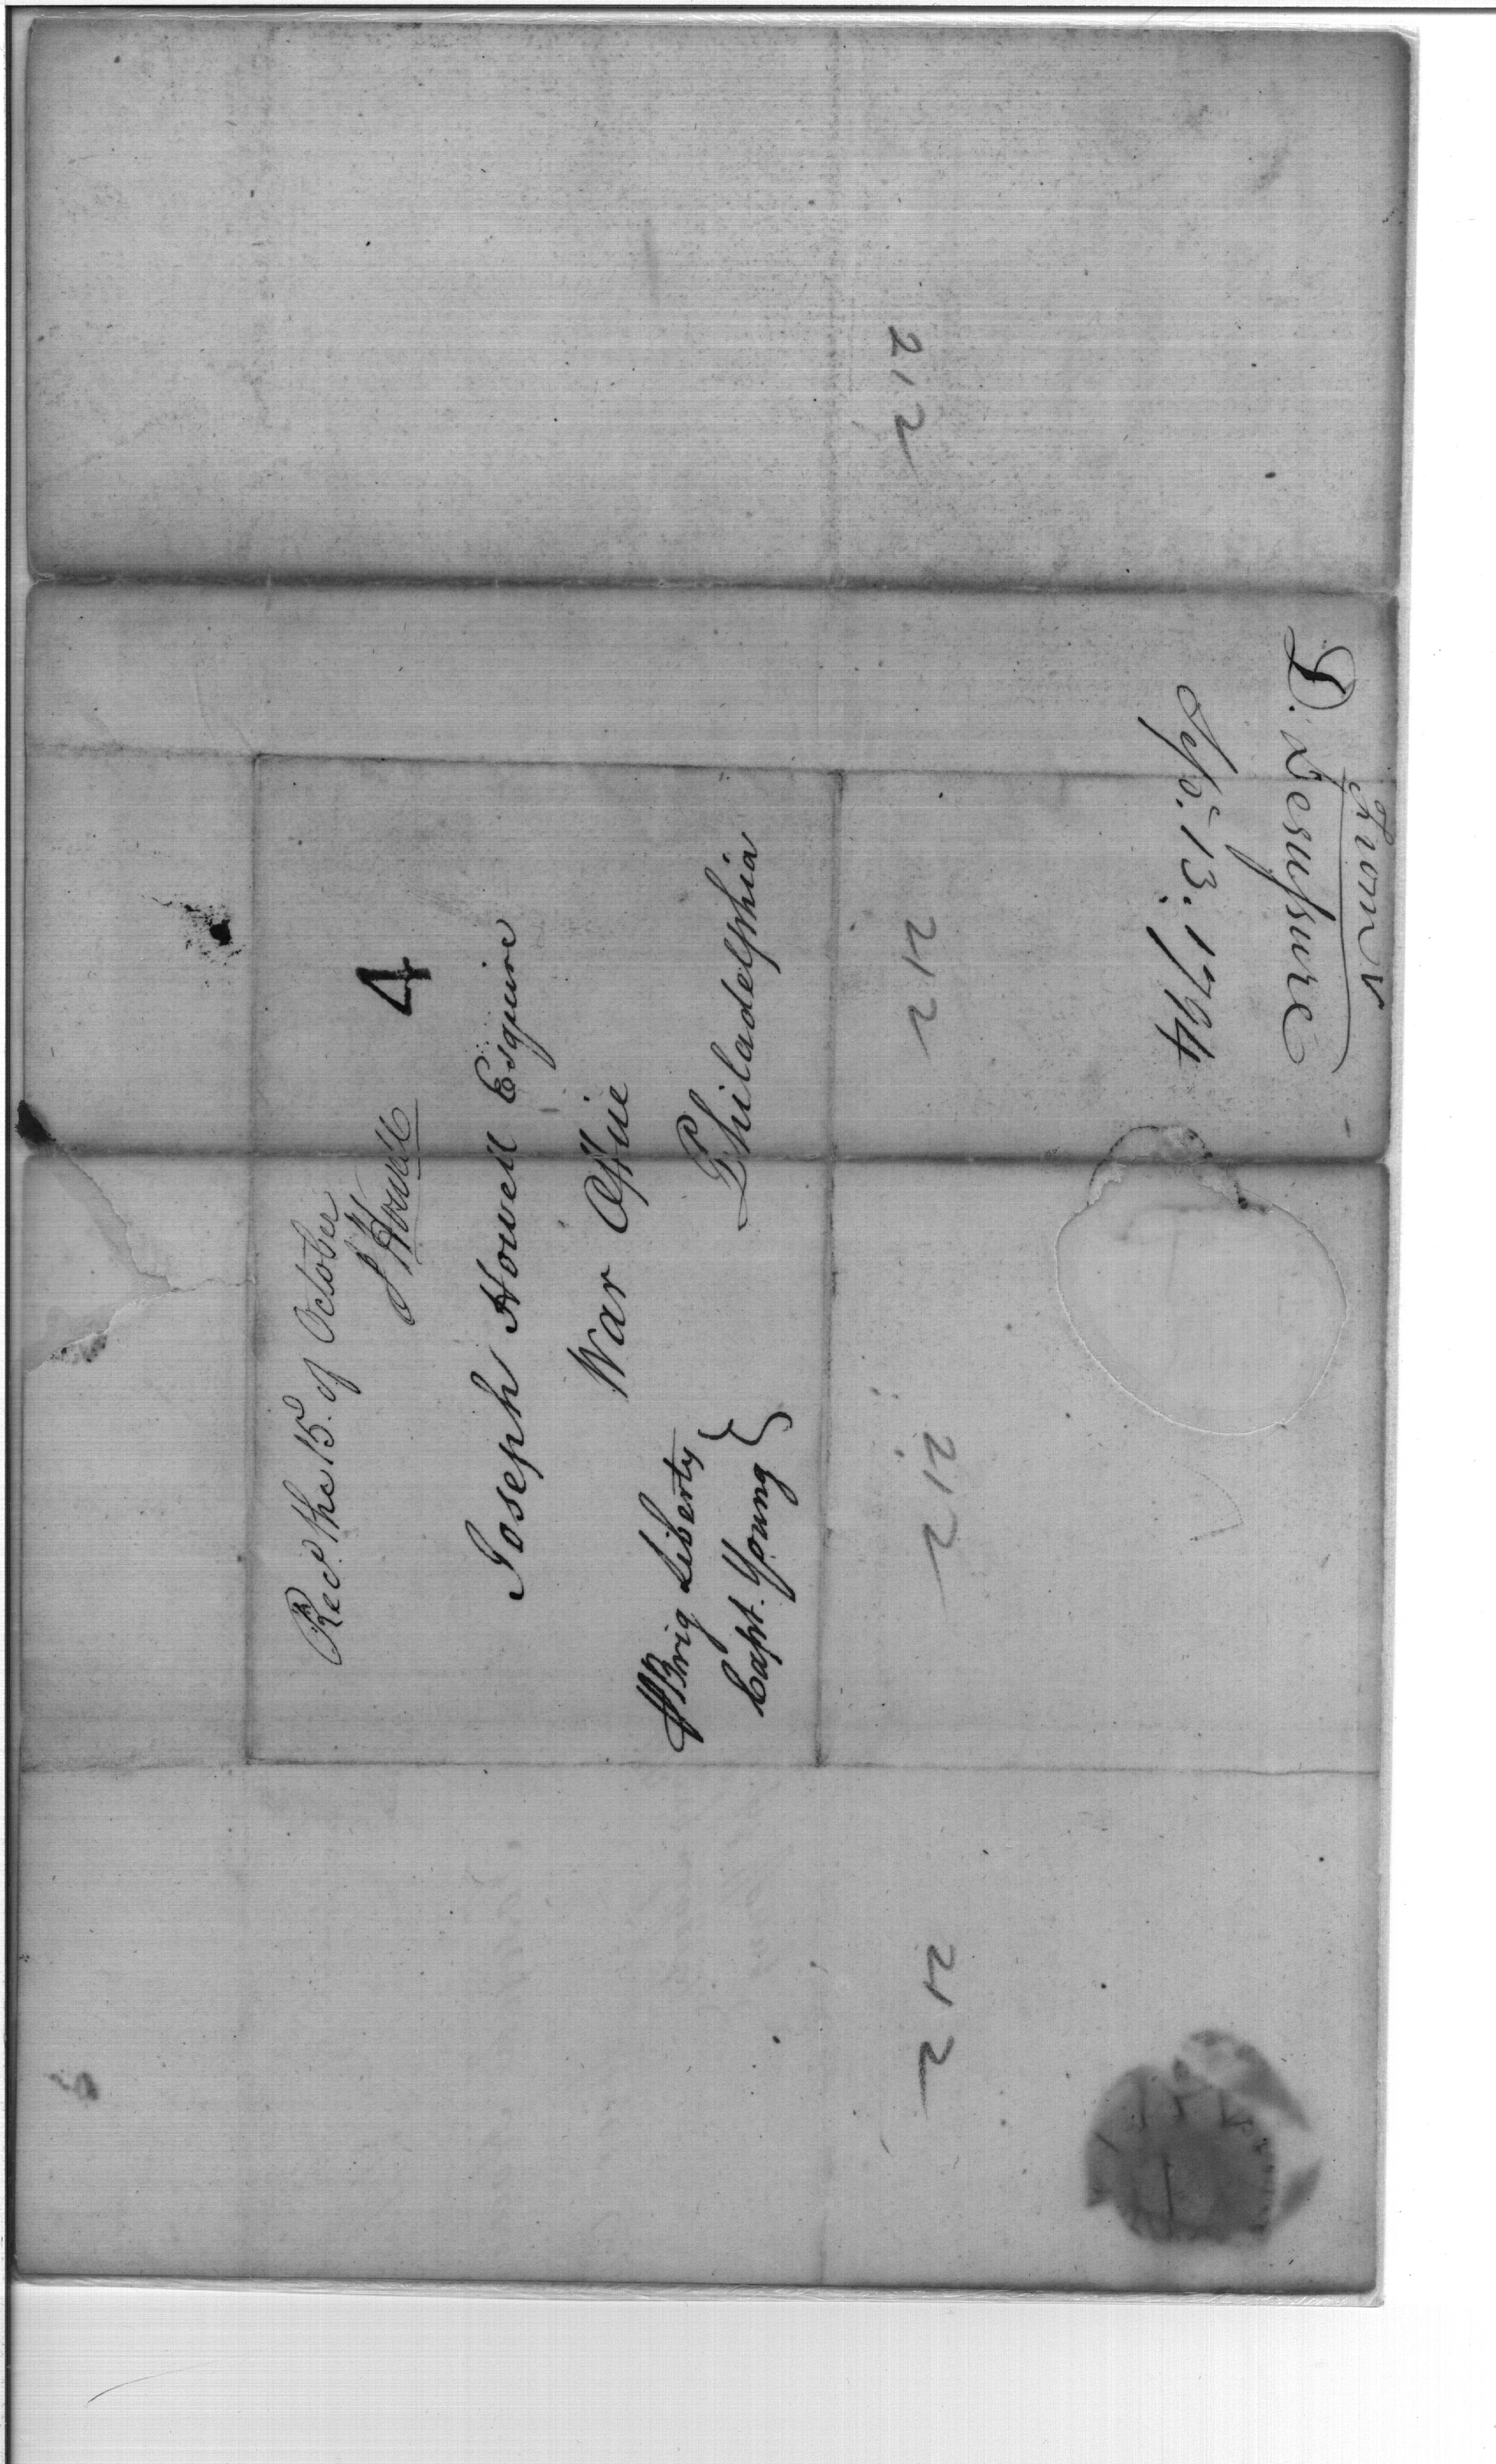 Recd. the 15. of October
J Howell
4
Joseph Howell Esquire
War Office
Philadelphia
Brig Liberty
Capt. Young
From
D. Desaussure
Sept. 13. 1794
212
212
212
212